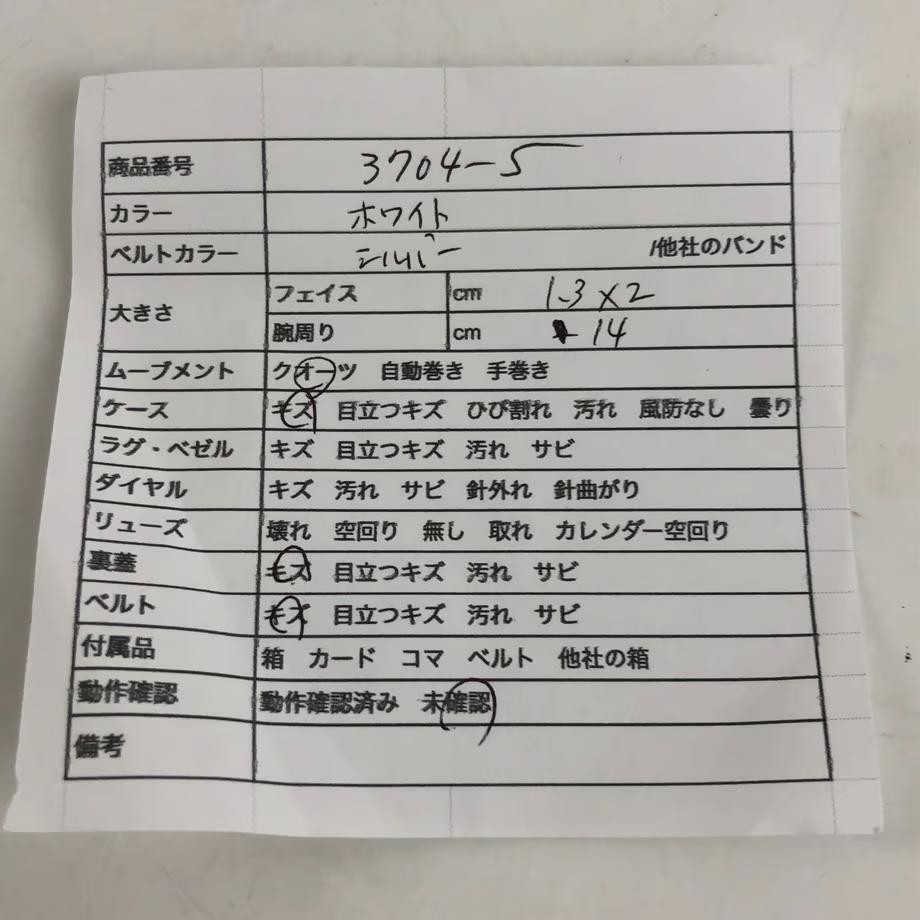 商品番号 3704-5
カラー ホワイト
ベルトカラー シルバー /他社のバンド
大きさ フェイス cm 1.3×2
腕周り cm 14
ムーブメント クオーツ 自動巻き 手巻き
ケース キズ 目立つキズ ひび割れ 汚れ 風防なし 曇り
ラグ・ベゼル キズ 目立つキズ 汚れ サビ
ダイヤル キズ 汚れ サビ 針外れ 針曲がり
リューズ 壊れ 空回り 無し 取れ カレンダー空回り
裏蓋 キズ 目立つキズ 汚れ サビ
ベルト キズ 目立つキズ 汚れ サビ
付属品 箱 カード コマ ベルト 他社の箱
動作確認 動作確認済み 未確認
備考